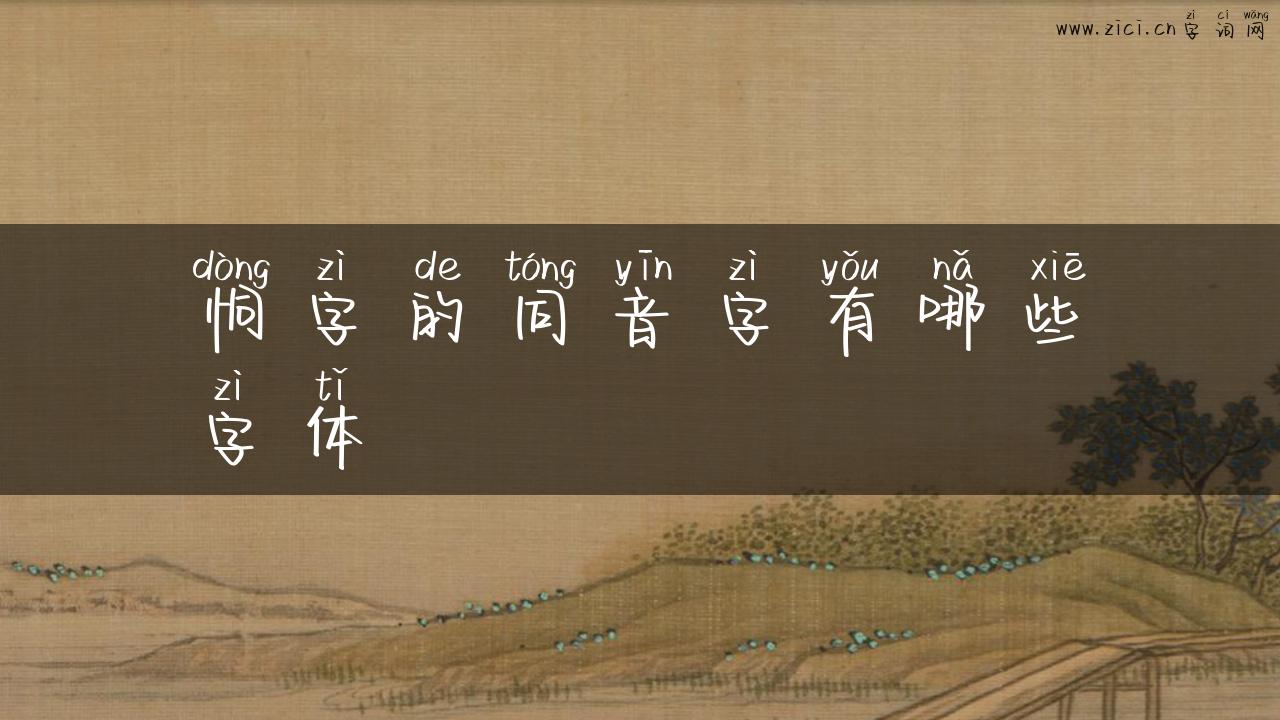 zì cí wǎng
www.zici.cn字词网
dòng zì de tóng yīn zì yǒu nǎ xiē
恫字的同音字有哪些
zì tǐ
字体